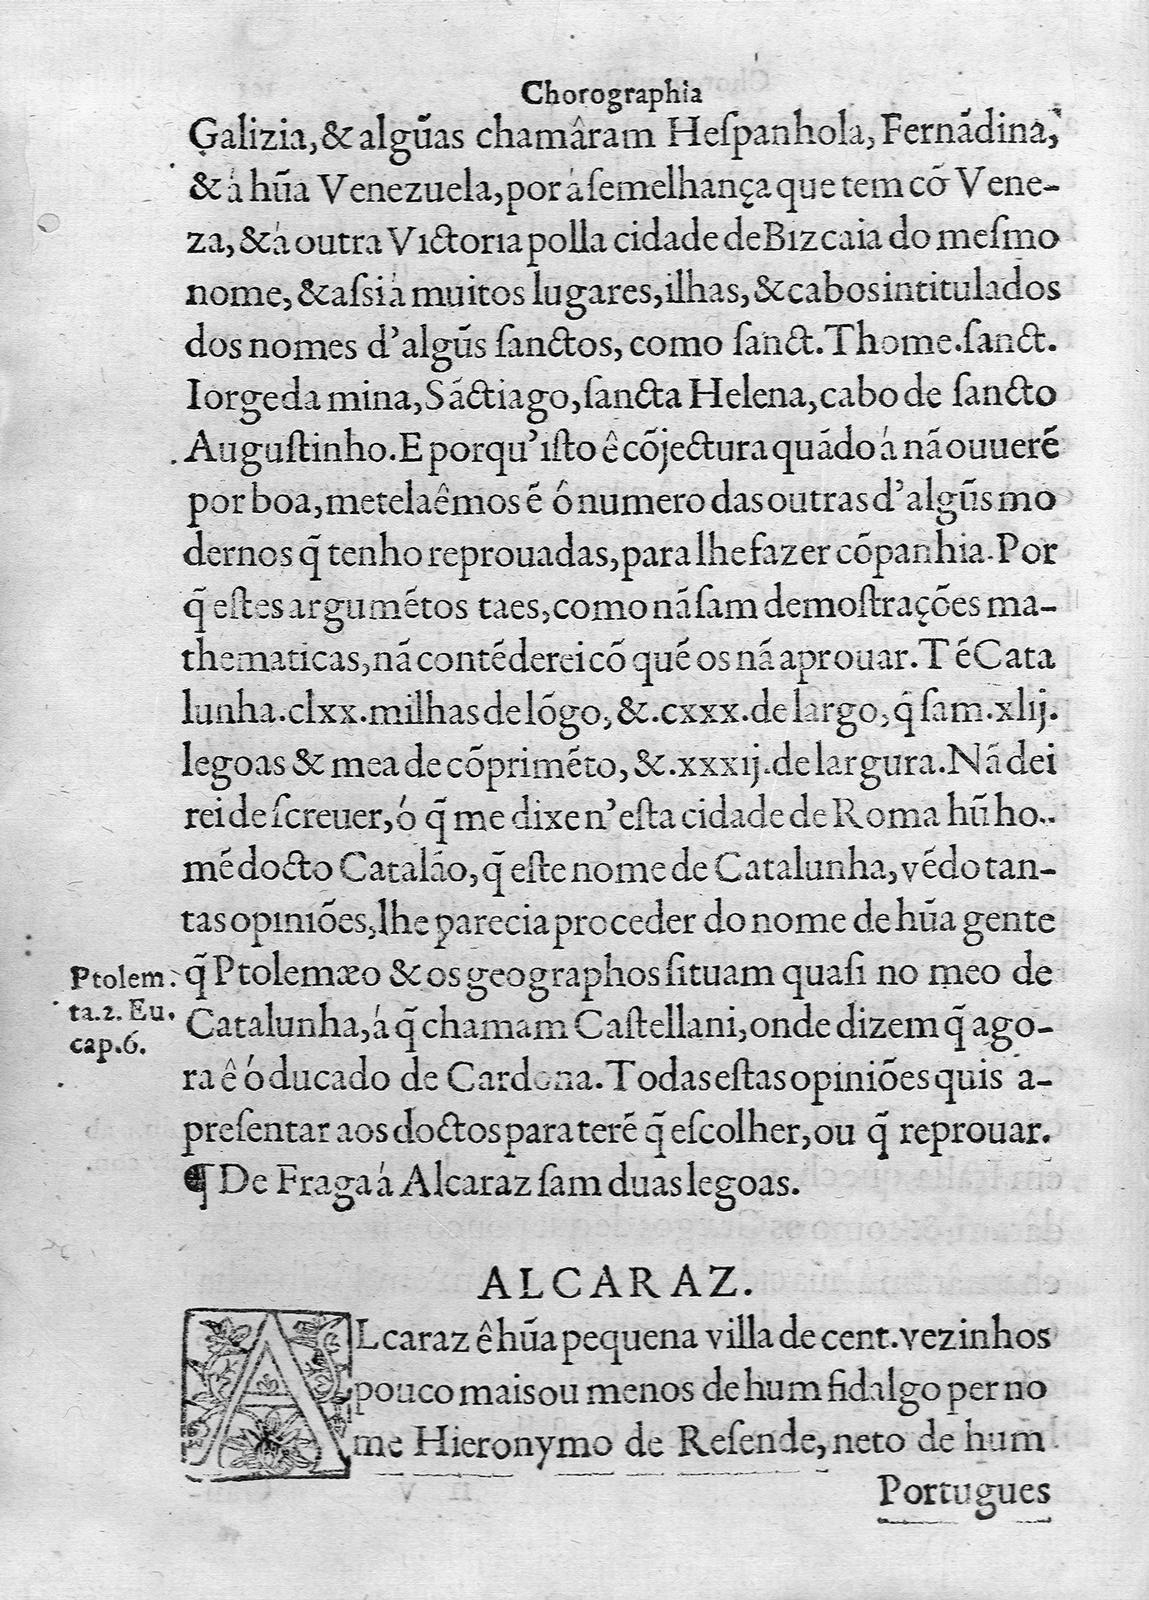 Chorographia
Galizia, & algũas chamâram Heſpanhola, Fernãdina,
& á hũa Venezuela, por á ſemelhança que tem cõ Vene-
za, & á outra Victoria polla cidade de Bizcaia do meſmo
nome, & aſsi á muitos lugares, ilhas, & cabos intitulados
dos nomes d'algũs ſanctos, como ſanct. Thome. ſanct.
Iorge da mina, Sãctiago, ſancta Helena, cabo de ſancto
Auguſtinho. E porqu'iſto ê cõjectura quãdo á nã ouuerẽ
por boa, metelaêmos ẽ ó numero das outras d'algũs mo
dernos q̃ tenho reprouadas, para lhe fazer cõpanhia. Por
q̃ eſtes argumẽtos taes, como nã ſam demoſtrações ma-
thematicas, nã contẽderei cõ quẽ os nã aprouar. Tẽ Cata
lunha. clxx. milhas de lõgo, &. cxxx. de largo, q̃ ſam. xlij.
legoas & mea de cõprimẽto, &. xxxij. de largura. Nã dei
rei de ſcreuer, ó q̃ me dixe n'eſta cidade de Roma hũ ho-
mẽ docto Catalão, q̃ eſte nome de Catalunha, vẽdo tan-
tas opiniões, lhe parecia proceder do nome de hũa gente
Ptolem.
ta.2. Eu.
cap.6.
q̃ Ptolemæo & os geographos ſituam quaſi no meo de
Catalunha, á q̃ chamam Caſtellani, onde dizem q̃ ago-
ra ê ó ducado de Cardona. Todas eſtas opiniões quis a-
preſentar aos doctos para terẽ q̃ eſcolher, ou q̃ reprouar.
¶ De Fraga á Alcaraz ſam duas legoas.
ALCARAZ.
ALcaraz ê hũa pequena villa de cent. vezinhos
pouco mais ou menos de hum fidalgo per no
me Hieronymo de Reſende, neto de hum
Portugues